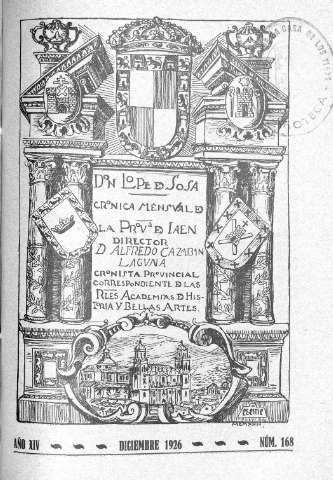 DON LOPE D SOSA
CRONICA MENSVAL D
LA PROVᴬ D JAEN
DIRECTOR
D ALFREDO CAZABAN
LAGUNA
CRONISTA PROVINCIAL
CORRESPONDIENTE D LAS
RLES ACADEMIAS D HIS-
TORIA Y BELLAS ARTES.
AÑO XIV DICIEMBRE 1926 NÚM. 168